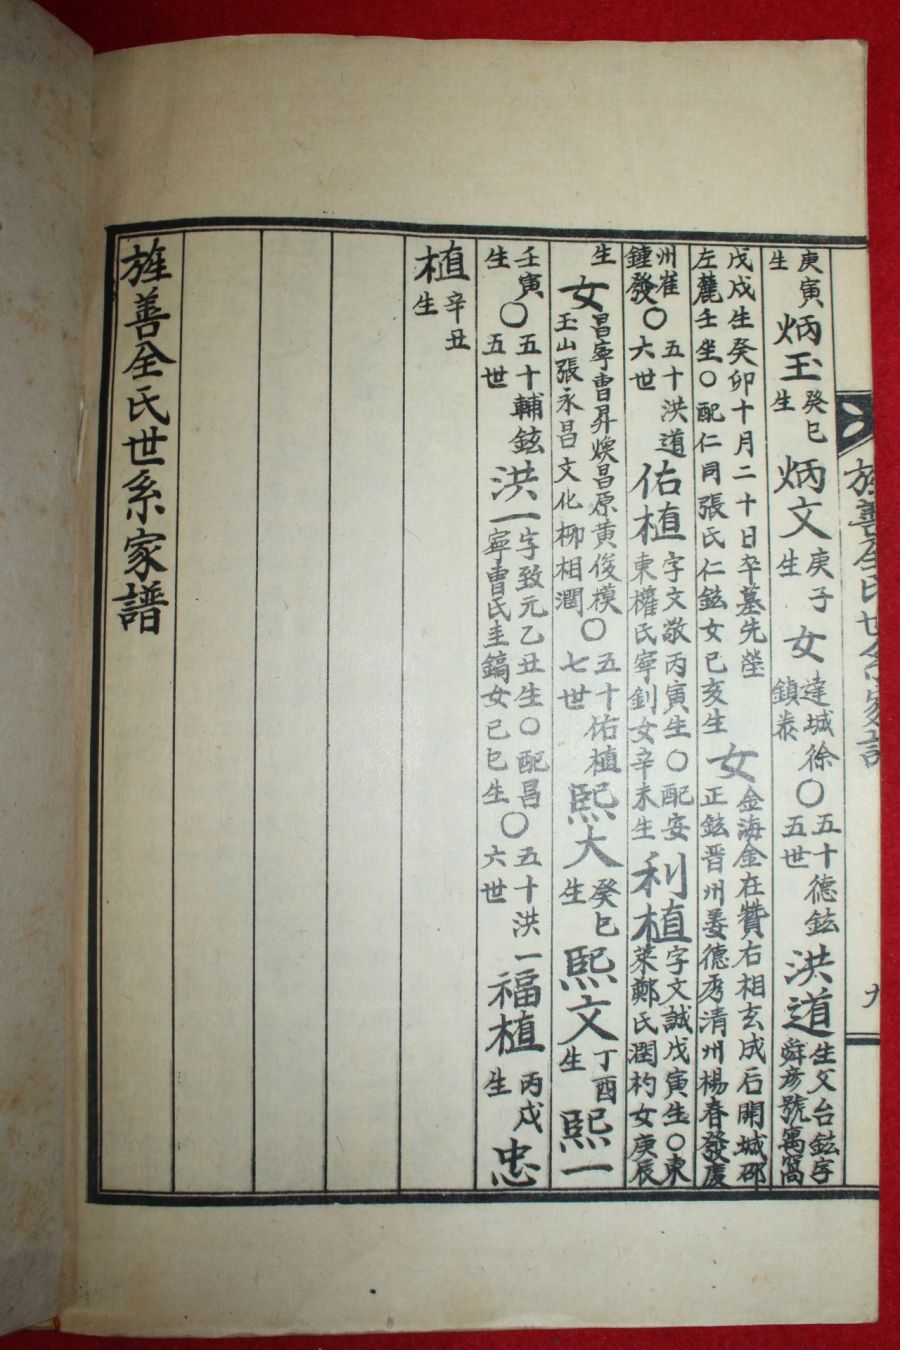 旌善全氏世系家譜 九
庚寅生 炳玉 癸巳生 炳文 庚子生 女 達城徐鎮泰 ○ 五十五世德鉉 洪道 生父台鉉字舜彦號寓窩
戊戌生癸卯十月二十日卒墓先塋左麓壬坐○配仁同張氏仁鉉女己亥生 女 金海金在贊右相玄成石開城邵正鉉晋州姜德秀清州楊春發慶
州崔鍾發 ○ 五十六世洪道 佑植 字文敬丙寅生○配安東權氏寧釗女辛未生 利植 字文誠戊寅生○東萊鄭氏潤杓女庚辰
生 女 昌寧曺昇煥昌原黃俊模玉山張永昌文化柳相潤 ○ 五十七世佑植 熙大 癸巳生 熙文 丁酉生 熙一
壬寅生 ○ 五十五世輔鉉 洪一 字致元乙丑生○配昌寧曺氏圭鎬女己巳生 ○ 五十六世洪一 福植 丙戌生 忠
植 辛丑生
旌善全氏世系家譜